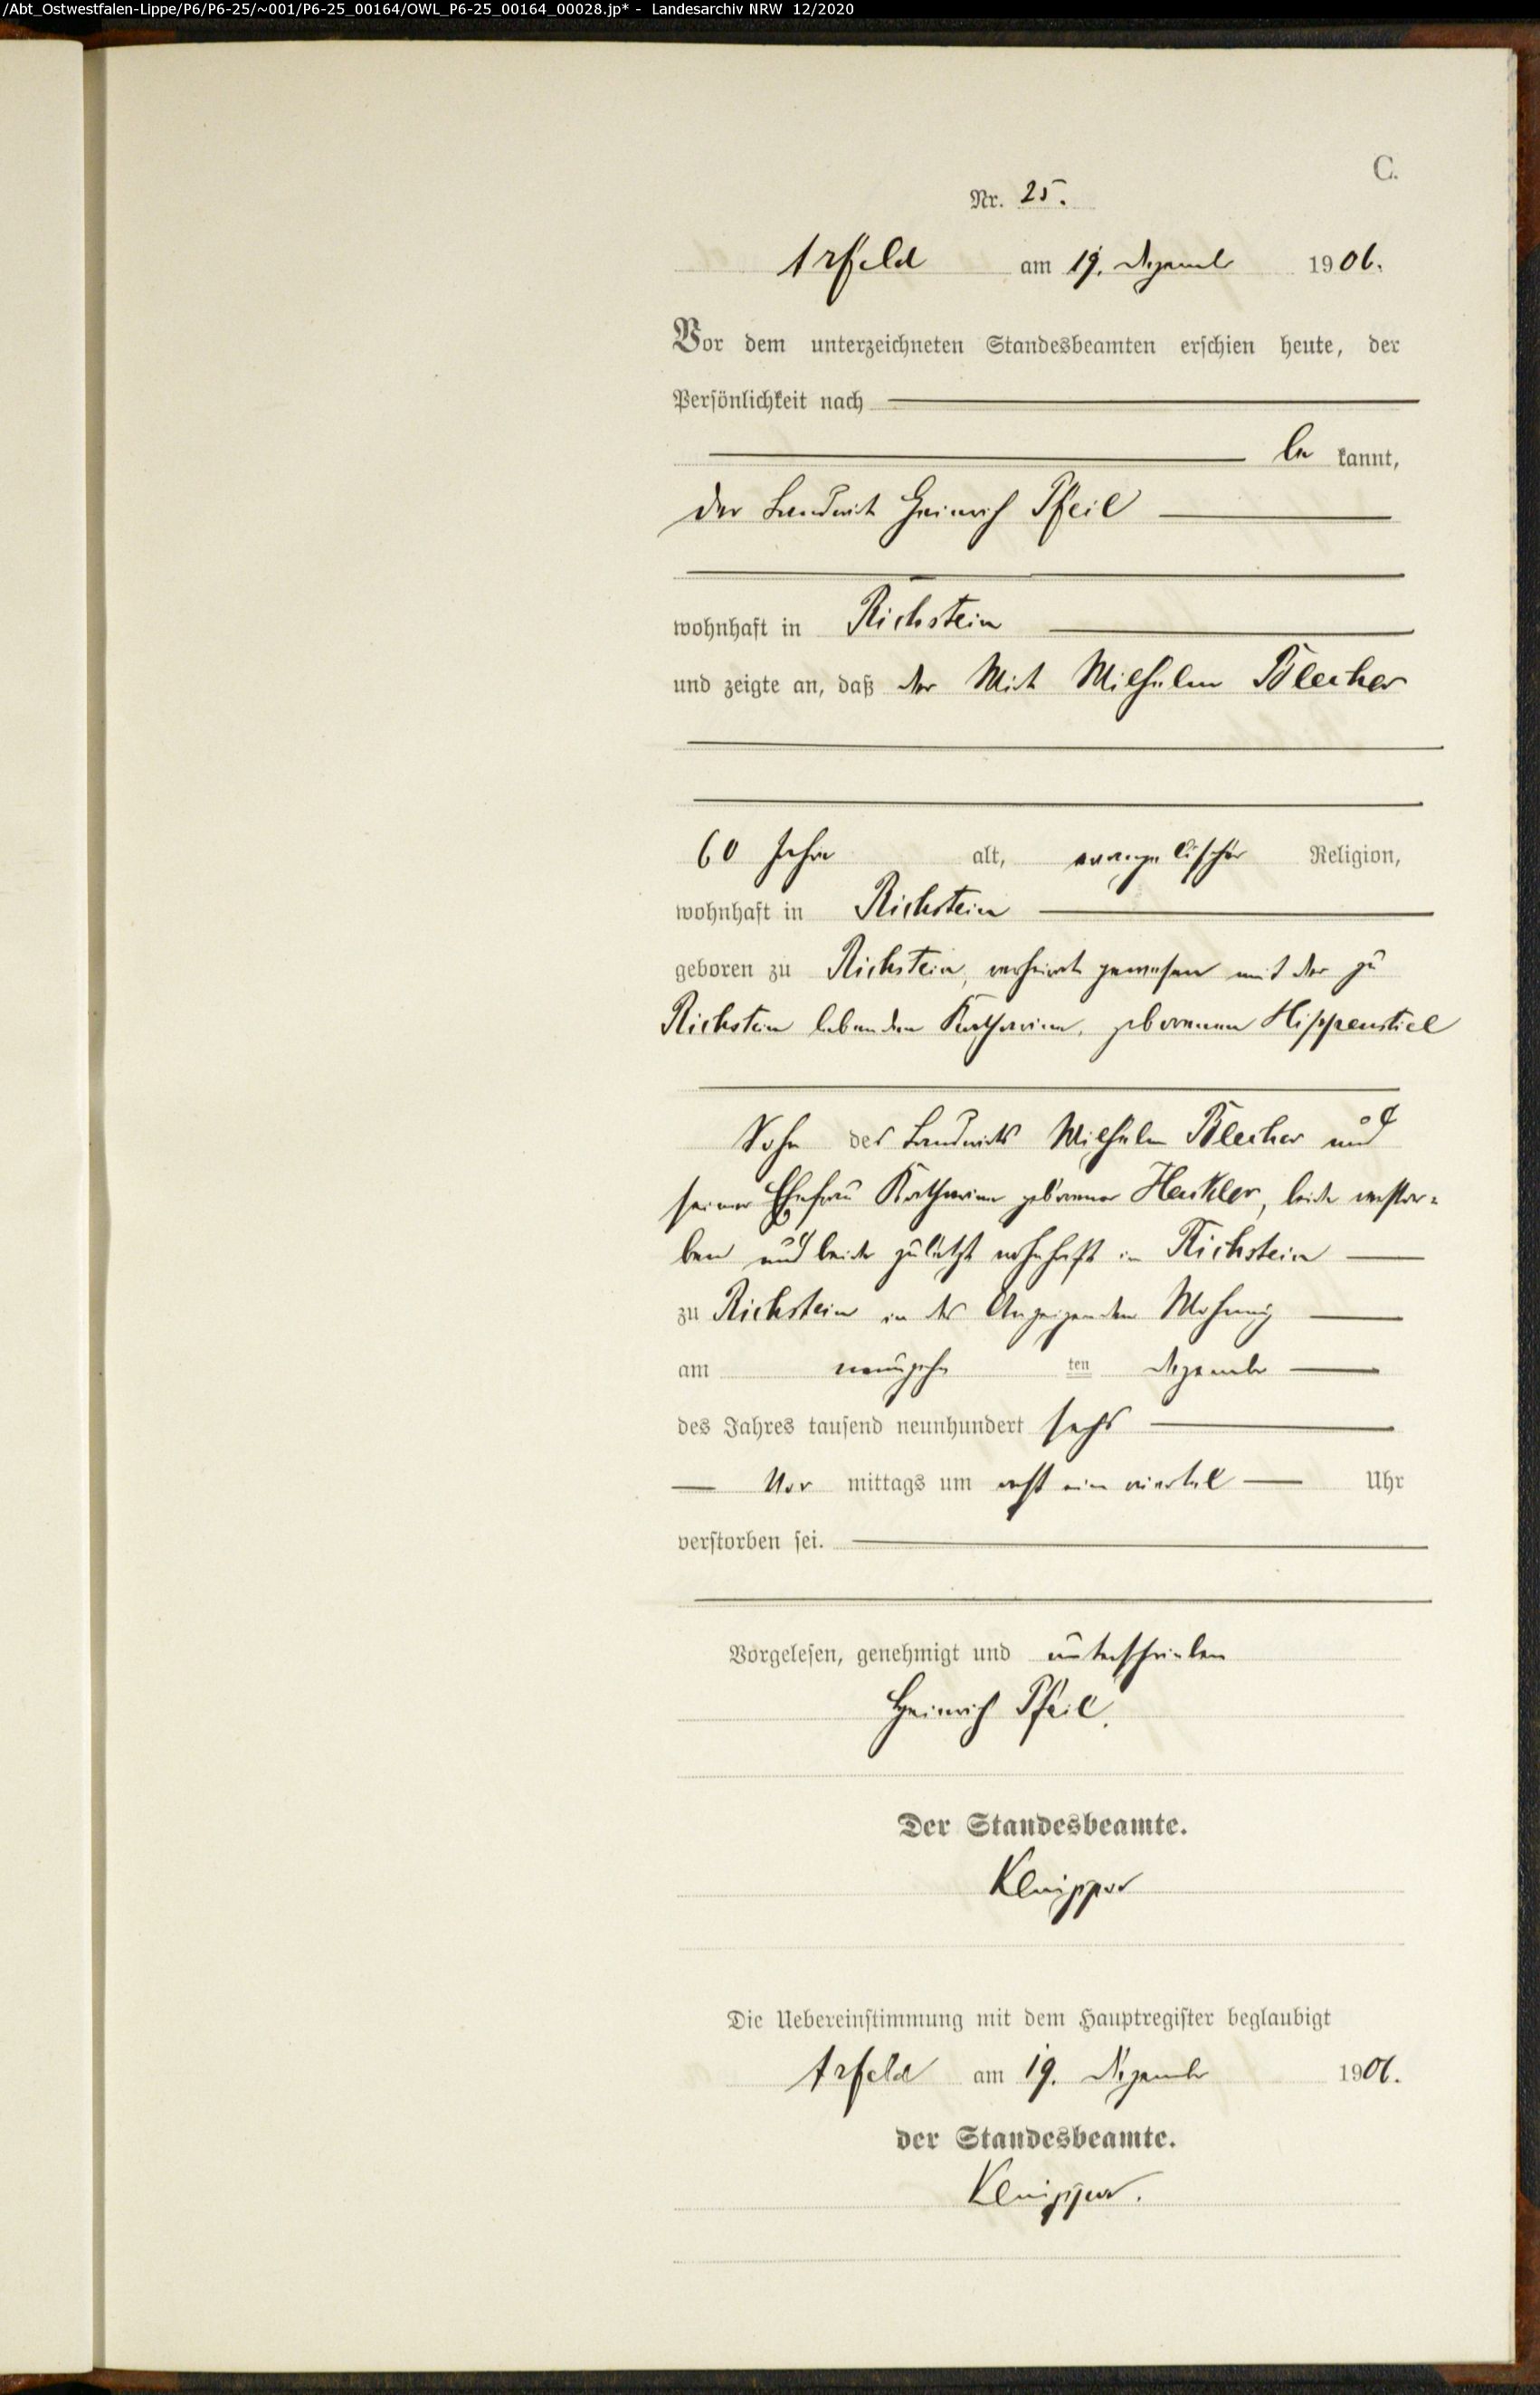 /Abt_Ostwestfalen-Lippe/P6/P6-25/~001/P6-25_00164/OWL_P6-25_00164_00028.jp* - Landesarchiv NRW 12/2020
C.
Nr. 25.
Arfeld am 19. Dezember 1906.
Vor dem unterzeichneten Standesbeamten erschien heute, der
Persönlichkeit nach
be kannt,
der Landwirt Heinrich Pfeil
wohnhaft in Richstein
und zeigte an, daß der Wirt Wilhelm Blecher
60 Jahre alt, evangelischer Religion,
wohnhaft in Richstein
geboren zu Richstein, verheirat gewesen mit der zu
Richstein lebenden Katharina, geborenen Hippenstiel
Sohn des Landwirts Wilhelm Blecher und
seiner Ehefrau Katharina geborener Henkler, beide verstor=
ben und beide zuletzt wohnhaft in Richstein
zu Richstein in des Anzeigenden Wohnung
am neunzehn ten Dezember
des Jahres tausend neunhundert sechs
Vor mittags um acht ein viertel Uhr
verstorben sei.
Vorgelesen, genehmigt und unterschrieben
Heinrich Pfeil.
Der Standesbeamte.
Knipper
Die Uebereinstimmung mit dem Hauptregister beglaubigt
Arfeld am 19. Dezember 1906.
der Standesbeamte.
Knipper.